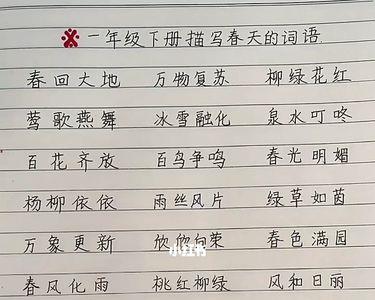 一年级下册描写春天的词语
春回大地 万物复苏 柳绿花红
莺歌燕舞 冰雪融化 泉水叮咚
百花齐放 百鸟争鸣 春光明媚
杨柳依依 雨丝风片 绿草如茵
万象更新 欣欣向荣 春色满园
小红书
春风化雨 桃红柳绿 风和日丽